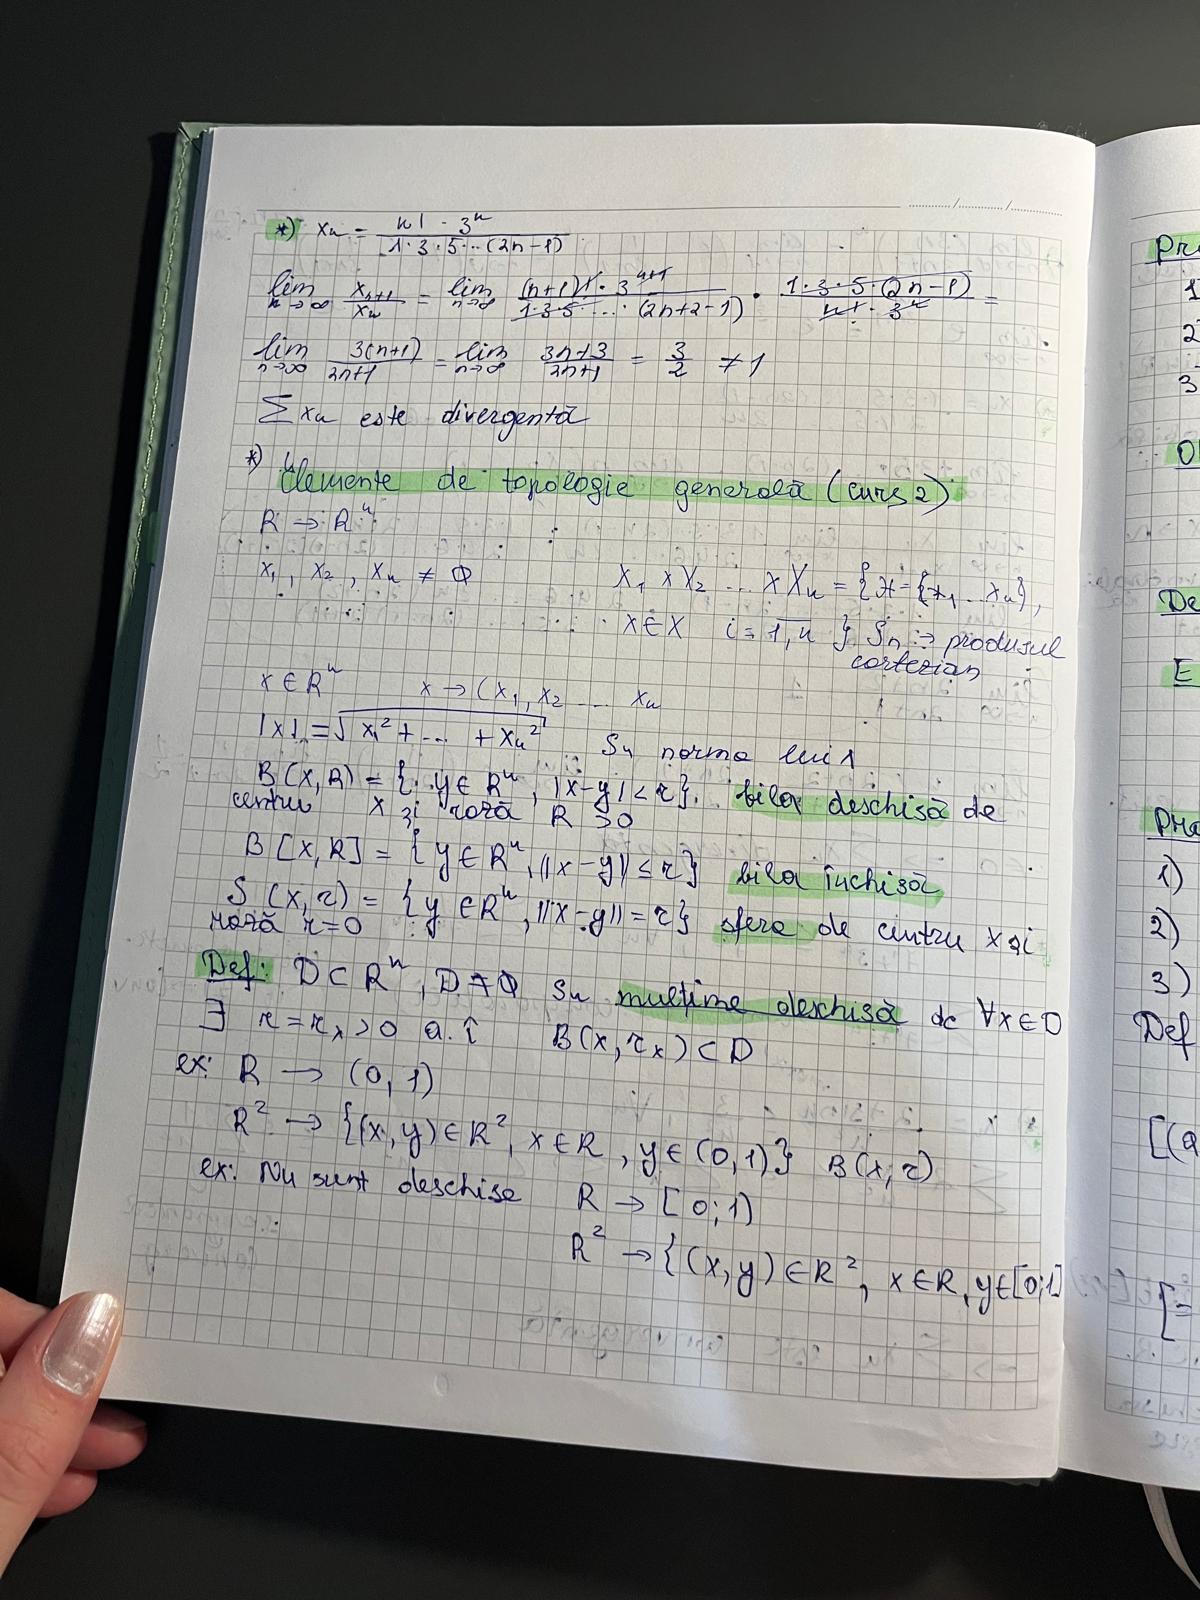 *) xₙ = n! · 3ⁿ / 1·3·5·...(2n-1)
lim n→∞ xₙ₊₁/xₙ = lim n→∞ (n+1)! · 3ⁿ⁺¹ / 1·3·5·...·(2n+2-1) · 1·3·5·(2n-1) / n! · 3ⁿ =
lim n→∞ 3(n+1)/2n+1 = lim n→∞ 3n+3/2n+1 = 3/2 ≠ 1
∑xₙ este divergentă
*) Elemente de topologie generală (curs 2)
R → Rⁿ
x₁, x₂, xₙ ≠ ∅ X₁ x X₂ ... x Xₙ = {x = {x₁ ... xₙ),
x∈X i = 1,n } Sₙ :→ produsul
cartezian
x ∈ Rⁿ x → (x₁, x₂ ... xₙ
|x| = √x₁² + ... + xₙ² Sₙ norma lui x
B(x,R) = {y∈Rⁿ, ||x-y|<r}. bila deschisă de
centru x și rază R >0
B[x,R] = {y∈Rⁿ, ||x-y|≤r} bila închisă
S(x,r) = {y∈Rⁿ, ||x-y||=r} sfera de centru x și
rază r=0
Def: D⊂Rⁿ, D≠∅ Sₙ mulțime deschisă dc ∀x∈D
∃ r=rₓ>0 a.î B(x,rₓ)⊂D
ex: R → (0,1)
R² → {(x,y)∈R², x∈R, y∈(0,1)} B(x,r)
ex: Nu sunt deschise R → [0;1)
R² → {(x,y)∈R², x∈R, y∈[0;1]
Pr
1
2
3
De
E
1)
2)
3)
Def
[(a
[=